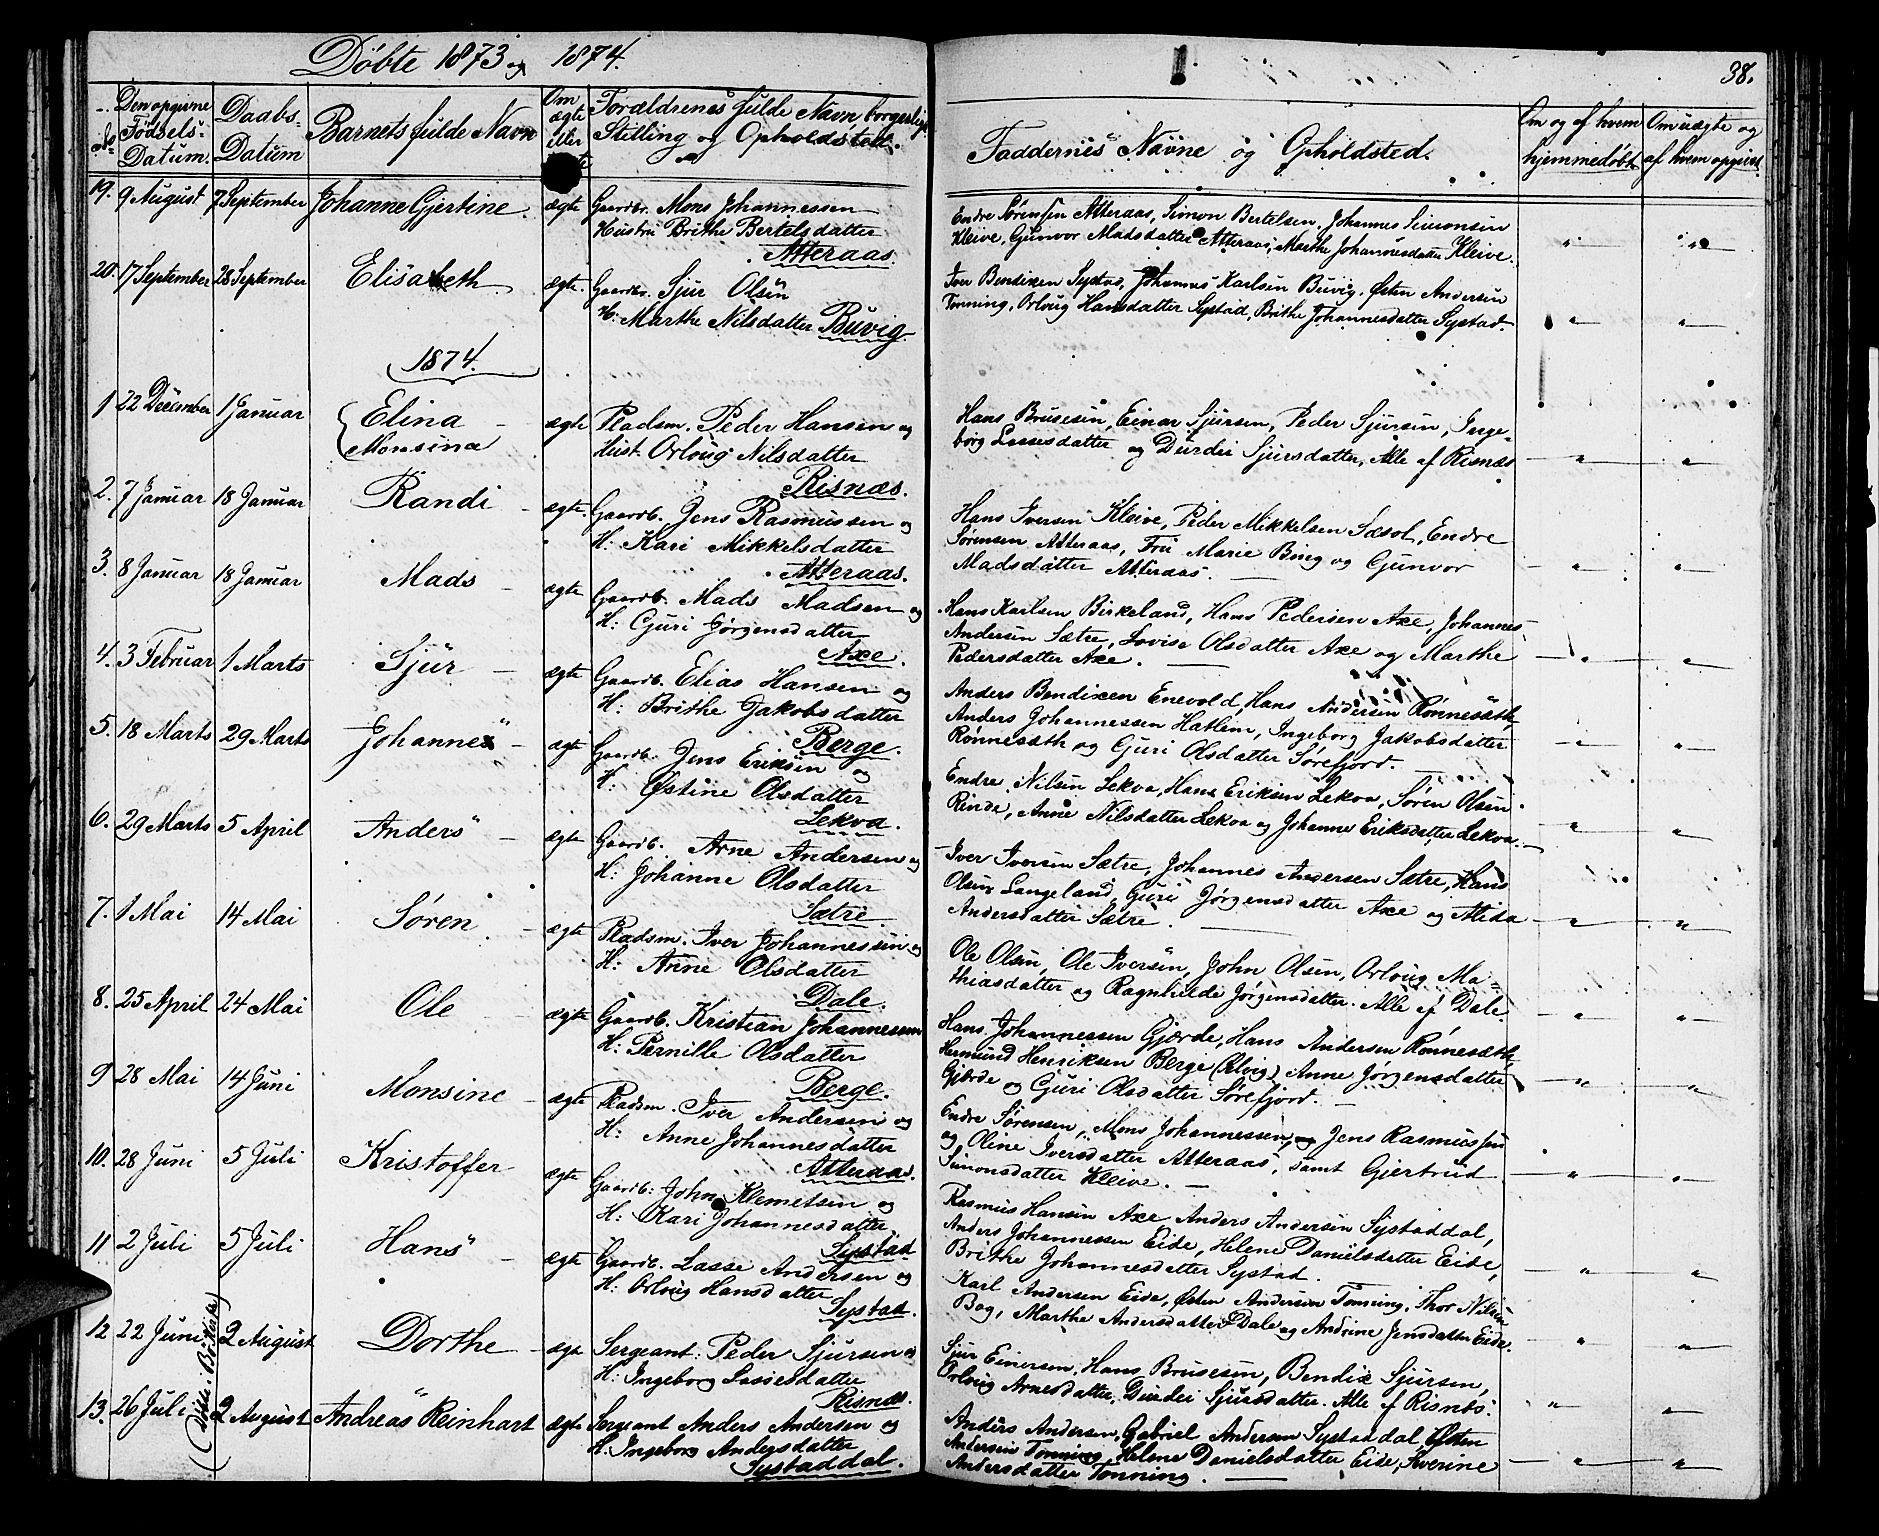 Döbte 1873 og 1874.
38.
No
Den opgivne Fødsels-Datum.
Daabs-Datum
Barnets fulde Navn
Om ægte eller
Forældrenes fulde Navn borgerlige Stilling og Opholdsted.
Faddernes Navne og Opholdsted.
Om og af hvem hjemmedøbt
Om uægte og af hvem opgivet
19. 9 August 7 September Johanne Gjertine. ægte Gaardbr. Mons Johannessen
Hustru Brithe Bertelsdatter
Atteraas.
Endre Sørensen Atteraas, Simon Bertelsen, Johannes Simonsen
Kleive, Gunvor Madsdatter Atteraas, Marthe Johannesdatter Kleive.
20. 17 September 28 September Elisabeth. ægte. Gaardbr. Sjur Olsen
H: Marthe Nilsdatter Buvig.
Iver Bendixen Systad, Johannes Karlsen Buvig, Østen Andersen
Tonning, Orloug Hansdatter Systad, Brithe Johannesdatter Systad.
1874.
1 22 December 1 Januar Elina Monsina ægte Pladsm. Peder Hansen og
Hust. Orloug Nilsdatter
Risnæs.
Hans Brusesen, Einar Sjursen, Peder Sjursen, Inge-
borg Lassesdatter og Durdei Sjursdatter, Alle af Risnæs
2. 7 Januar 18 Januar Randi ægte. Gaardb. Jens Rasmussen og
H: Kari Mikkelsdatter
Atteraas.
Hans Iversen Kleive, Peder Mikkelsen Sæsol, Endre
Sørensen Atteraas, Fru Marie Bing og Gunvor
Madsdatter Atteraas.
3. 8 Januar 18 Januar Mads ægte Gaardb. Mads Madsen og
H: Guri Jørgensdatter
Axe.
Hans Karlsen Birkeland, Hans Pedersen Axe, Johannes
Andersen Sætre, Lovise Olsdatter Axe og Marthe
Pedersdatter Axe.
4. 3 Februar 1 Marts Sjur ægte Gaardb. Elias Hansen og
H: Brithe Jakobsdatter
Berge.
Anders Bendixen Enevold, Hans Andersen Rønnesæth,
Anders Johannessen Hatlem, Ingeborg Jakobsdatter
Rønnesæth og Guri Olsdatter Sørefjord.
5. 18 Marts 29 Marts Johannes ægte Gaardb. Jens Eriksen og
H: Østine Olsdatter
Lekva.
Endre Nilsen Lekva, Hans Eriksen Lekva, Søren Olsen
Rinde, Anne Nilsdatter Lekva og Johanne Eriksdatter Lekva.
6. 29 Marts 5 April Anders ægte Gaardb. Arne Andersen og
H: Johanne Olsdatter
Sætre.
Iver Iversen Sætre, Johannes Andersen Sætre, Hans
Olsen Langeland, Guri Jørgensdatter Axe og Alida
Andersdatter Sætre.
7. 1 Mai 14 Mai Søren ægte Pladsm. Iver Johannessen og
H: Anne Olsdatter
Dale.
Ole Olsen, Ole Iversen, John Olsen, Orloug Ma-
thiasdatter og Ragnhilde Jørgensdatter. Alle af Dale.
8. 25 April 24 Mai Ole ægte Gaardb. Kristian Johannessen
H: Pernille Olsdatter
Berge.
Hans Johannessen Gjærde, Hans Andersen Rønnesæth
Hermund Henriksen Berge, Anne Jørgensdatter
Gjærde og Guri Olsdatter Sørefjord.
9 28 Mai 14 Juni Monsine ægte Pladsm. Iver Andersen og
H: Anne Johannesdatter
Atteraas.
Endre Sørensen, Mons Johannessen, og Jens Rasmussen
og Oline Iversdatter Atteraas, samt Gjertrud
Simonsdatter Kleive.
10. 28 Juni 5 Juli Kristoffer ægte Gaardb: John Klemetsen og
H: Kari Johannesdatter
Systad
Rasmus Hansen Axe, Anders Andersen Systaddal,
Anders Johannessen Eide, Helene Danielsdatter Eide,
Brithe Johannesdatter Systad.
11 2 Juli 5 Juli Hans ægte Gaardb. Lasse Andersen og
H: Orloug Hansdatter
Systad.
Karl Andersen Eide, Østen Andersen Tonning, Thor Nilsen
Bog, Marthe Andersdatter Dale og Andrine Jensdatter Eide.
12 22 Juni 2 August Dorthe ægte Sergeant: Peder Sjursen og
H: Ingeborg Lassesdatter
Risnæs.
Sjur Einersen, Hans Brusesen, Bendix Sjursen,
Orloug Arnesdatter, Durdei Sjursdatter. Alle af Risnes.
13. 26 Juli 2 August Andreas Reinhart ægte Sergeant Anders Andersen og
H: Ingeborg Andersdatter
Systaddal.
Anders Andersen, Gabriel Andersen Systaddal, Østen
Andersen Tonning, Helene Danielsdatter Eide, Severine
Andersdatter Tonning.